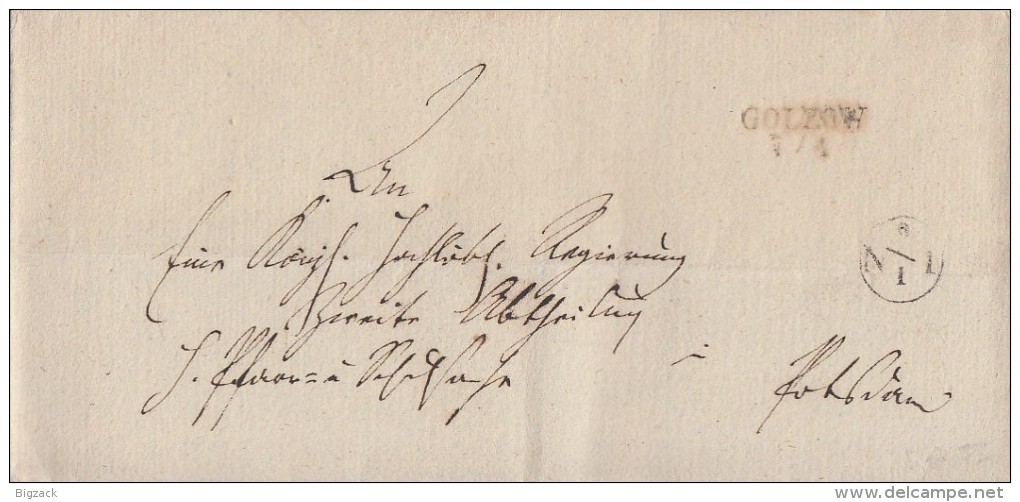 GOLZOW
7/4
An
Eine Königl. Hochlöbl. Regierung
Zweite Abtheilung
N 1
1
Pfarr= u Schulsache
i
Potsdam
Bigzack
www.delcampe.net